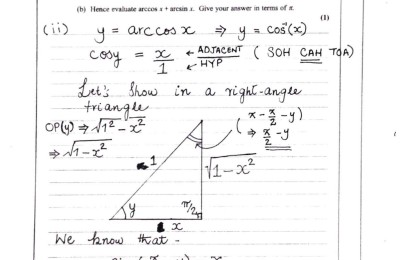 (b) Hence evaluate arccos x + arcsin x. Give your answer in terms of π.
(1)
(ii) y = arccos x ⇒ y = cos⁻¹(x)
cosy = x/1 ← ADJACENT ← HYP (SOH CAH TOA)
Let's show in a right-angle
triangle
OP(y) ⇒ √1² - x²
⇒ √1-x²
(π - π/2 - y)
⇒ π/2 - y
1
√1-x²
y
π/2
x
We know that -